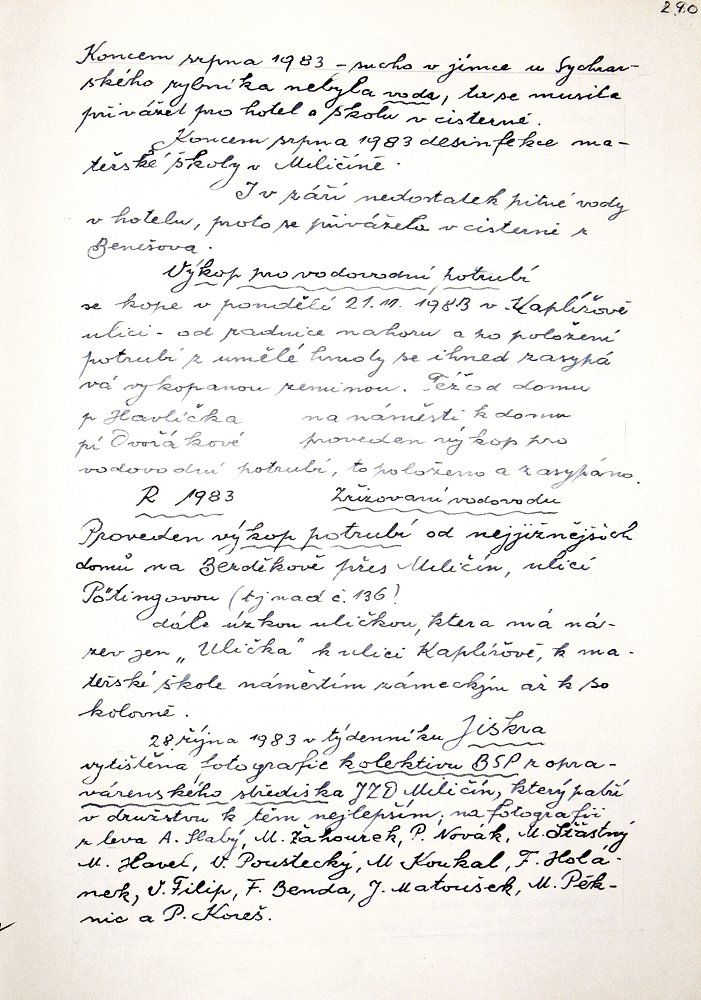 290
Koncem srpna 1983 - sucho v jímce u Sychrov-
ského rybníka nebyla voda, ta se musila
přivážet pro hotel a školu v cisterně.
Koncem srpna 1983 desinfekce ma-
teřské školy v Miličíně.
I v září nedostatek pitné vody
v hotelu, proto se přivážela v cisterně z
Benešova.
Výkop pro vodovodní potrubí
se kope v pondělí 21.11. 1983 v Kaplířově
ulici - od radnice nahoru a po položení
potrubí z umělé hmoty se ihned zasypá
vá vykopanou zeminou. Též od domu
p Havlíčka na náměstí k domu
pí Dvořákové proveden výkop pro
vodovodní potrubí, to položeno a zasypáno.
R 1983 Zřizovaní vodovodu
Proveden výkop potrubí od nejjižnějších
domů na Berděkově přes Miličín, ulicí
Pötingovou (tj nad č. 136!
dále úzkou uličkou, ktera má ná-
zev jen „Ulička" k ulici Kaplířově, k ma-
teřské škole náměstím zámeckým až k so
kolovně.
28. října 1983 v týdenníku Jiskra
vytištěna fotografie kolektivu BSP z opra-
várenského střediska JZD Miličín, který patří
v družstvu k těm nejlepším; na fotografii
z leva A. Slabý, M. Záhourek, P. Novák, M. Šťastný
M. Havel, V. Poustecký, M Koukal, F. Hola-
nek, V. Filip, F. Benda, J. Matoušek, M. Pěk-
nic a P. Koreš.